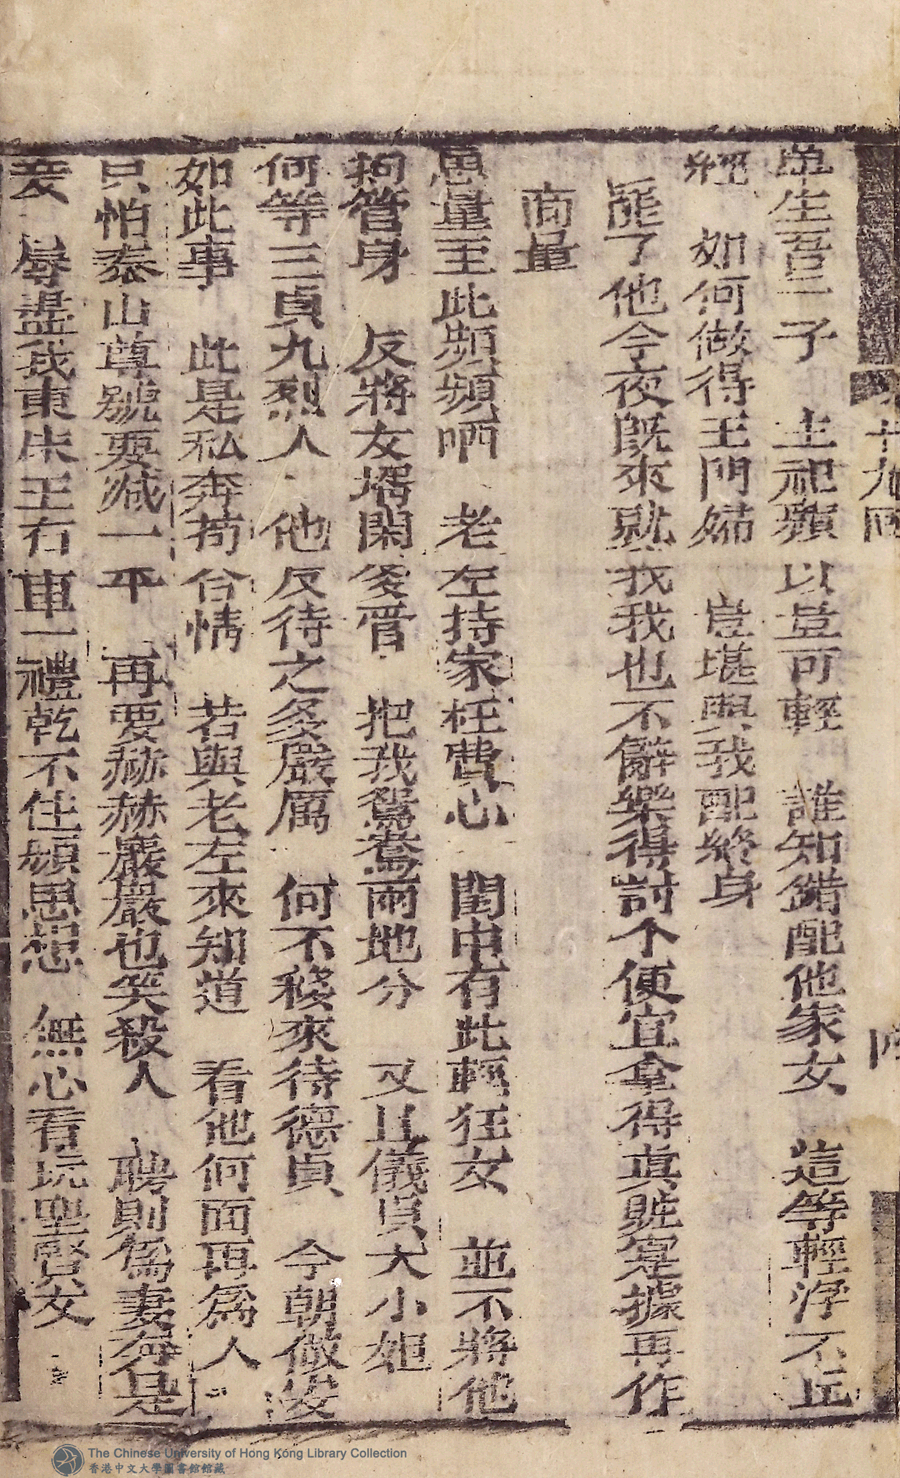 十九回
單生吾一子　主祀蘋以豈可輕　誰知錯配他家女　這等輕浮不正
經　如何做得王門婦　豈堪與我配終身
罷了他今夜既來就我我也不辭樂得討个便宜拿得真贓寔據再作
商量
思量至此頻頻哂　老左持家枉費心　閨中有此輕狂女　並不將他
拘管身　反將女壻閑受管　把我鴛鴦兩地分　又且儀貞大小姐
何等三貞九烈人　他反待之多嚴厲　何不移來待德貞　今朝做出
如此事　此是私奔苟合情　若與老左來知道　看他何面再爲人
只怕泰山尊號要減一平　再要赫赫嚴嚴也笑殺人　聘則爲妻奔是
妾　辱盡我東床王右車一禮乾不住頻思想　無心看玩聖賢文
The Chinese University of Hong Kong Library Collection
香港中文大學圖書館館藏